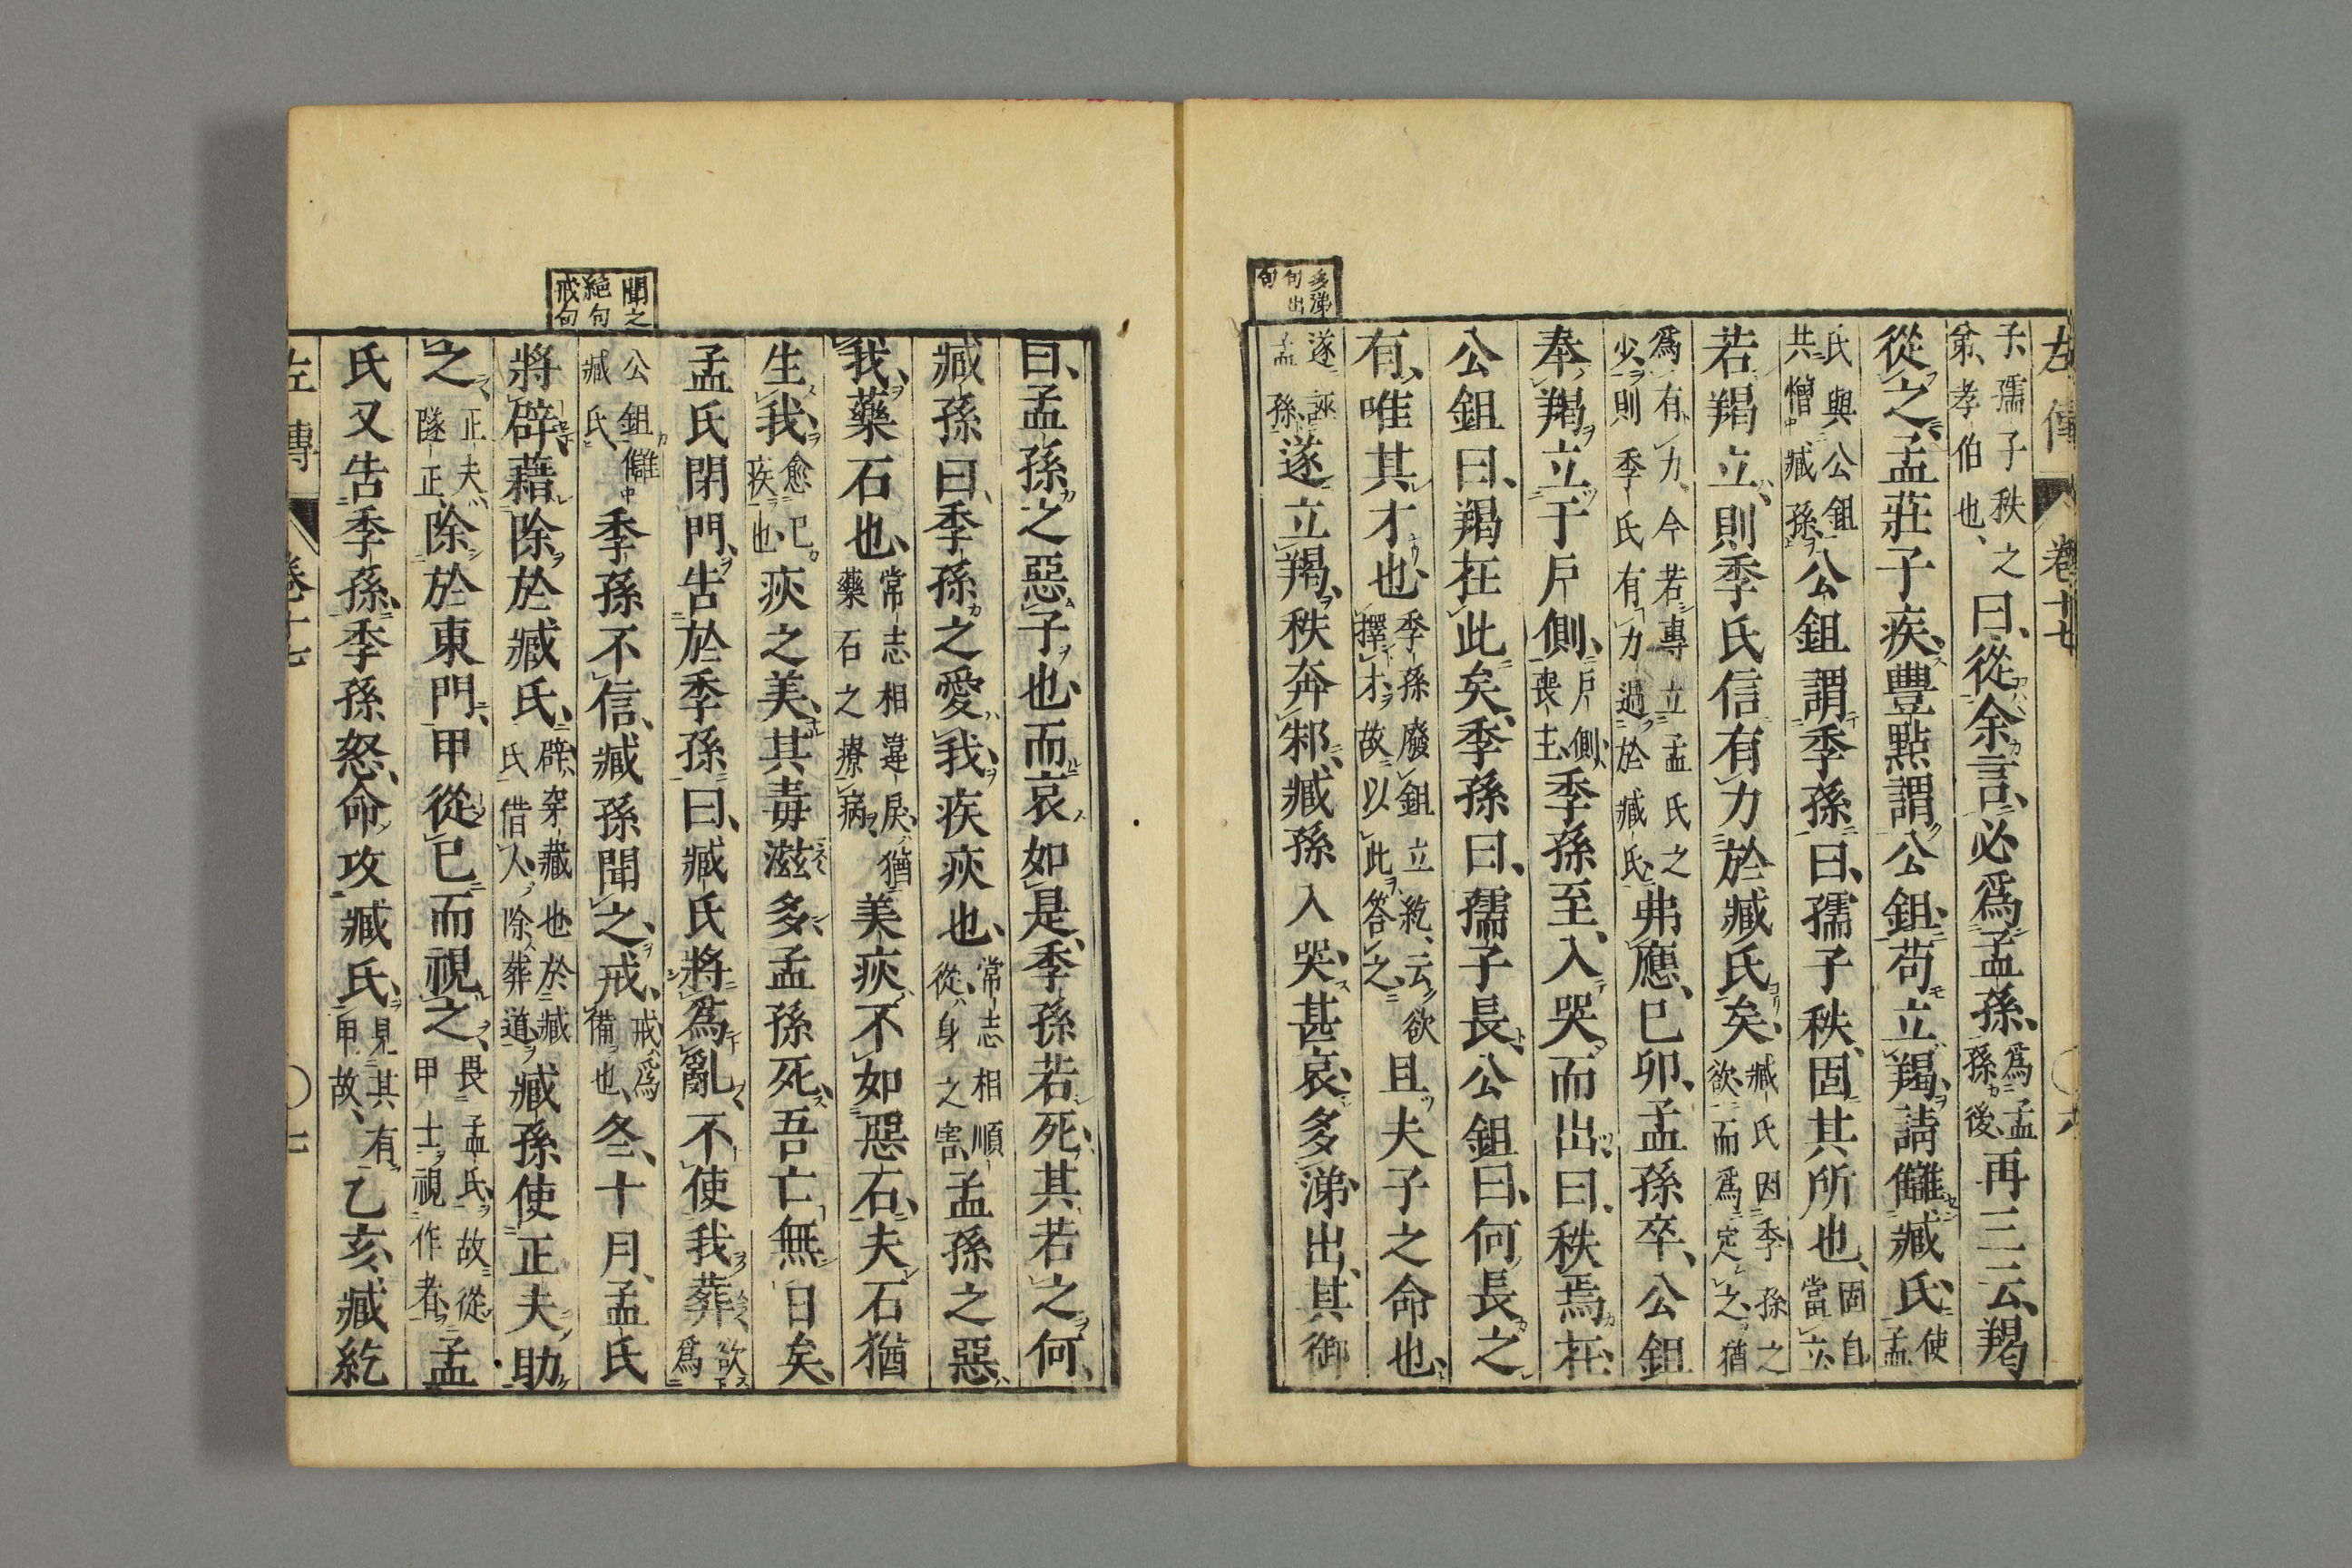 左傳 卷十七
子、孺子秩之弟、孝伯也、曰、從余言、必爲孟孫、爲孟孫後、再三云、羯
從之、孟莊子疾、豐點謂公鉏、苟立羯、請讎臧氏、使孟
氏與公鉏共憎臧孫、公鉏謂季孫曰、孺子秩、固其所也、固自當立、
若羯立、則季氏信有力於臧氏矣、臧氏因季孫之欲而爲定之、猶
爲有力、今若專立孟氏之少、則季氏有力過於臧氏、弗應、己卯、孟孫卒、公鉏
奉羯立于戶側、戶側、喪主、季孫至、入哭而出、曰、秩焉在、
公鉏曰、羯在此矣、季孫曰、孺子長、公鉏曰、何長之
有、唯其才也、季孫廢鉏立紇、云欲擇才、故以此答之、且夫子之命也、
遂誣孟孫、遂立羯、秩奔邾、臧孫入哭、甚哀、多涕、出、其御
多涕句出句
曰、孟孫之惡子也、而哀如是、季孫若死、其若之何、
臧孫曰、季孫之愛我、疾疢也、常志相順從、身之害、孟孫之惡
我、藥石也、常志相違戾、猶藥石之療病、美疢不如惡石、夫石猶
生我、愈己疾也、疢之美、其毒滋多、孟孫死、吾亡無日矣、
孟氏閉門、告於季孫曰、臧氏將爲亂、不使我葬、欲爲
公鉏讎臧氏、季孫不信、臧孫聞之、戒、戒爲備也、冬、十月、孟氏
聞之絕句戒句
將辟、藉除於臧氏、辟、穿藏也、於臧氏借人除葬道、臧孫使正夫助
之、正夫、隧正、除於東門、甲從己而視之、畏孟氏、故從甲士視作者、孟
氏又告季孫、季孫怒、命攻臧氏、見其有甲故、乙亥、臧紇
左傳 卷十七